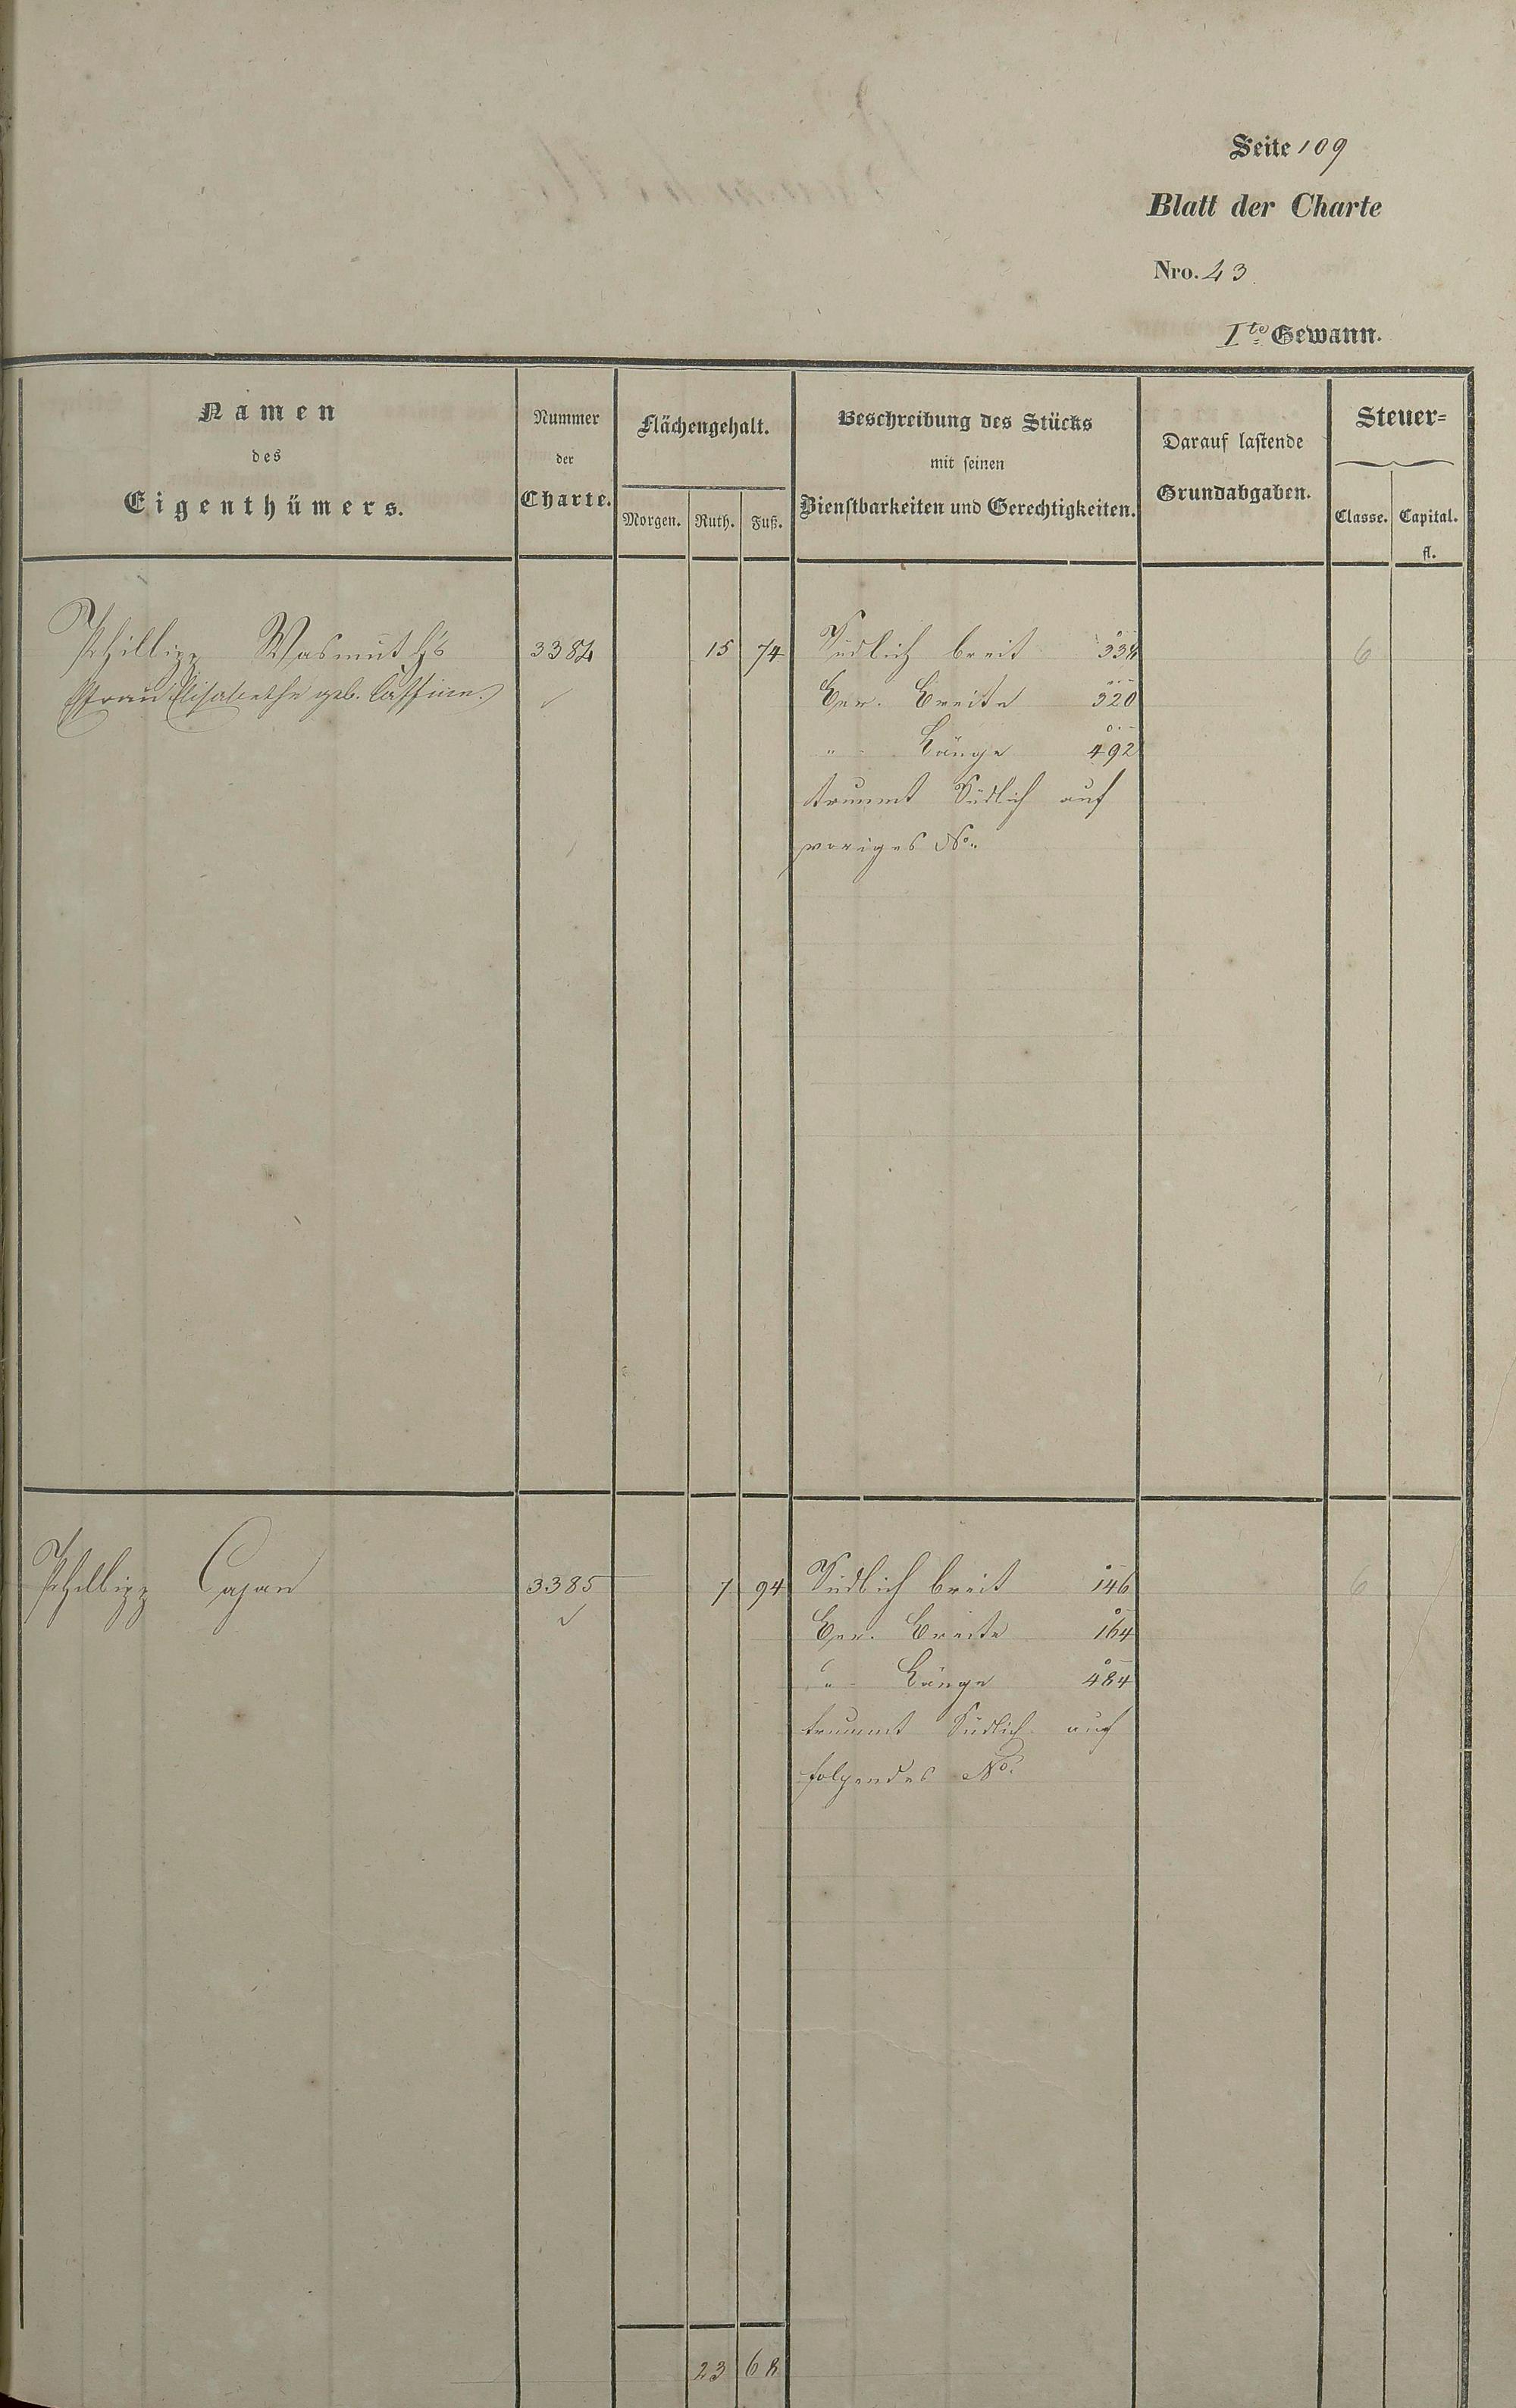 Seite 109
Blatt der Charte
Nro. 43.
I te Gewann.
Namen
des
Eigenthümers.
Nummer
der
Charte.
Flächengehalt.
Morgen. Ruth. Fuß.
Beschreibung des Stücks
mit seinen
Dienstbarkeiten und Gerechtigkeiten.
Darauf lastende
Grundabgaben.
Steuer=
Classe. Capital.
fl.
Phillipp Wasmuth's 3384 15 74 Südlich breit 334 6
Frau Elisabethe geb. Ber. Breite 320
" Länge 492
trummt Südlich auf
voriges No.
Phillipp Cajan 3385 7 94 Südlich breit 146 6
Ber. Breite 164
" Länge 484
trummt Südlich auf
folgendes No.
23 68